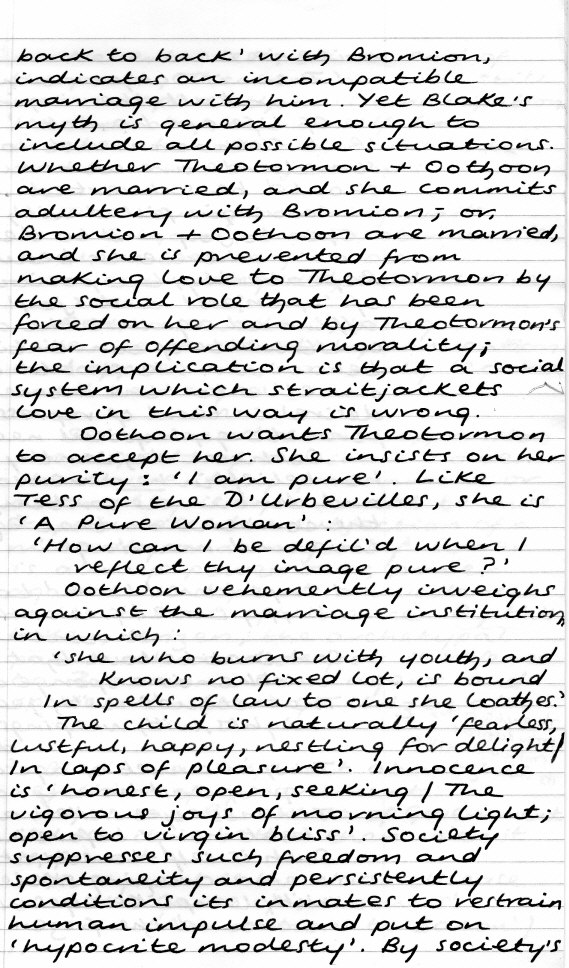 back to back' with Bromion,
indicates an incompatible
marriage with him. Yet Blake's
myth is general enough to
include all possible situations.
Whether Theotormon + Oothoon
are married, and she commits
adultery with Bromion; or,
Bromion + Oothoon are married,
and she is prevented from
making love to Theotormon by
the social role that has been
forced on her and by Theotormon's
fear of offending morality;
the implication is that a social
system which straitjackets
love in this way is wrong.
Oothoon wants Theotormon
to accept her. She insists on her
purity: 'I am pure'. Like
Tess of the D'Urbevilles, she is
'A Pure Woman':
'How can I be defil'd when I
reflect thy image pure?'
Oothoon vehemently inveighs
against the marriage institution,
in which:
'she who burns with youth, and
knows no fixed lot, is bound
In spells of law to one she loathes.'
The child is naturally 'fearless,
lustful, happy, nestling for delight/
In laps of pleasure'. Innocence
is 'honest, open, seeking / The
vigorous joys of morning light;
open to virgin bliss'. Society
suppresses such freedom and
spontaneity and persistently
conditions its inmates to restrain
human impulse and put on
'hypocrite modesty'. By society's